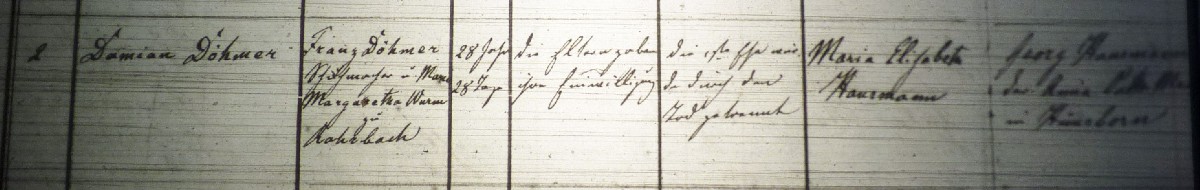 2
Damian Döhmer
Franz Döhmer
Schuhmacher u Mar.
Margaretha Wurm
zu
Rohrbach
28 Jahr
28 Tage
die Eltern gaben
ihre Einwilligung
die 1ste Ehe wur
de durch den
Tod getrennt
Maria Elisabeta
Hausmann
Georg
der
in